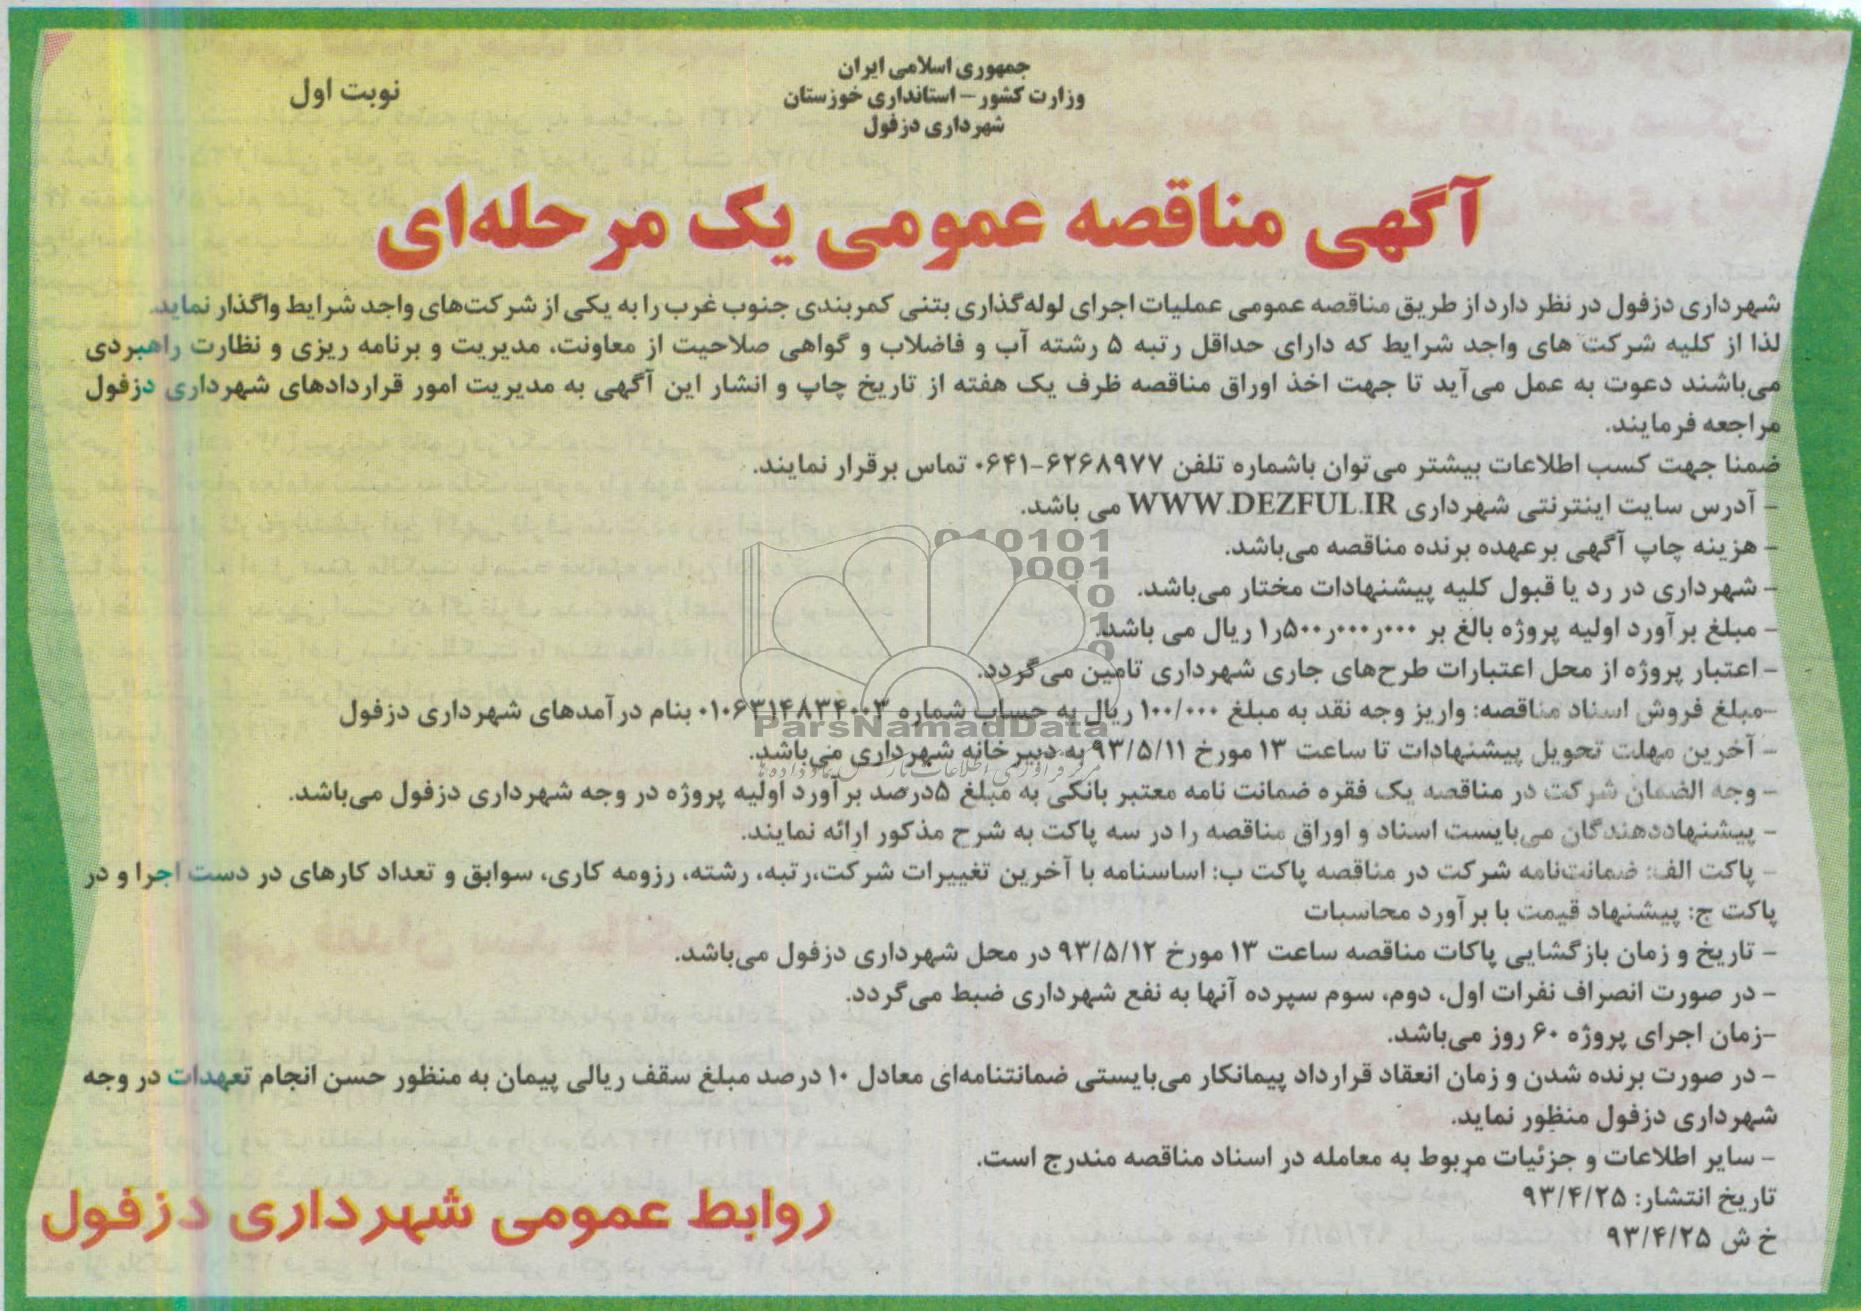 جمهوری اسلامی ایران
وزارت کشور – استانداری خوزستان
شهرداری دزفول
نوبت اول
آگهی مناقصه عمومی یک مرحله‌ای
شهرداری دزفول در نظر دارد از طریق مناقصه عمومی عملیات اجرای لوله‌گذاری بتنی کمربندی جنوب غرب را به یکی از شرکت‌های واجد شرایط واگذار نماید.
لذا از کلیه شرکت های واجد شرایط که دارای حداقل رتبه ۵ رشته آب و فاضلاب و گواهی صلاحیت از معاونت، مدیریت و برنامه ریزی و نظارت راهبردی
می‌باشند دعوت به عمل می‌آید تا جهت اخذ اوراق مناقصه ظرف یک هفته از تاریخ چاپ و انشار این آگهی به مدیریت امور قراردادهای شهرداری دزفول
مراجعه فرمایند.
ضمنا جهت کسب اطلاعات بیشتر می‌توان باشماره تلفن ۶۲۶۸۹۷۷-۰۶۴۱ تماس برقرار نمایند.
- آدرس سایت اینترنتی شهرداری WWW.DEZFUL.IR می باشد.
- هزینه چاپ آگهی برعهده برنده مناقصه می‌باشد.
- شهرداری در رد یا قبول کلیه پیشنهادات مختار می‌باشد.
- مبلغ برآورد اولیه پروژه بالغ بر ۱٫۵۰۰٫۰۰۰٫۰۰۰ ریال می باشد.
- اعتبار پروژه از محل اعتبارات طرح‌های جاری شهرداری تامین می‌گردد.
-مبلغ فروش اسناد مناقصه: واریز وجه نقد به مبلغ ۱۰۰/۰۰۰ ریال به حساب شماره ۰۱۰۶۳۱۴۸۳۴۰۰۳ بنام درآمدهای شهرداری دزفول
- آخرین مهلت تحویل پیشنهادات تا ساعت ۱۳ مورخ ۹۳/۵/۱۱ به دبیرخانه شهرداری می‌باشد.
- وجه الضمان شرکت در مناقصه یک فقره ضمانت نامه معتبر بانکی به مبلغ ۵درصد برآورد اولیه پروژه در وجه شهرداری دزفول می‌باشد.
- پیشنهاددهندگان می‌بایست اسناد و اوراق مناقصه را در سه پاکت به شرح مذکور ارائه نمایند.
- پاکت الف: ضمانت‌نامه شرکت در مناقصه پاکت ب: اساسنامه با آخرین تغییرات شرکت،رتبه، رشته، رزومه کاری، سوابق و تعداد کارهای در دست اجرا و در
پاکت ج: پیشنهاد قیمت با برآورد محاسبات
- تاریخ و زمان بازگشایی پاکات مناقصه ساعت ۱۳ مورخ ۹۳/۵/۱۲ در محل شهرداری دزفول می‌باشد.
- در صورت انصراف نفرات اول، دوم، سوم سپرده آنها به نفع شهرداری ضبط می‌گردد.
-زمان اجرای پروژه ۶۰ روز می‌باشد.
- در صورت برنده شدن و زمان انعقاد قرارداد پیمانکار می‌بایستی ضمانتنامه‌ای معادل ۱۰ درصد مبلغ سقف ریالی پیمان به منظور حسن انجام تعهدات در وجه
شهرداری دزفول منظور نماید.
- سایر اطلاعات و جزئیات مربوط به معامله در اسناد مناقصه مندرج است.
تاریخ انتشار: ۹۳/۴/۲۵
خ ش ۹۳/۴/۲۵
روابط عمومی شهرداری دزفول
ParsNamadData